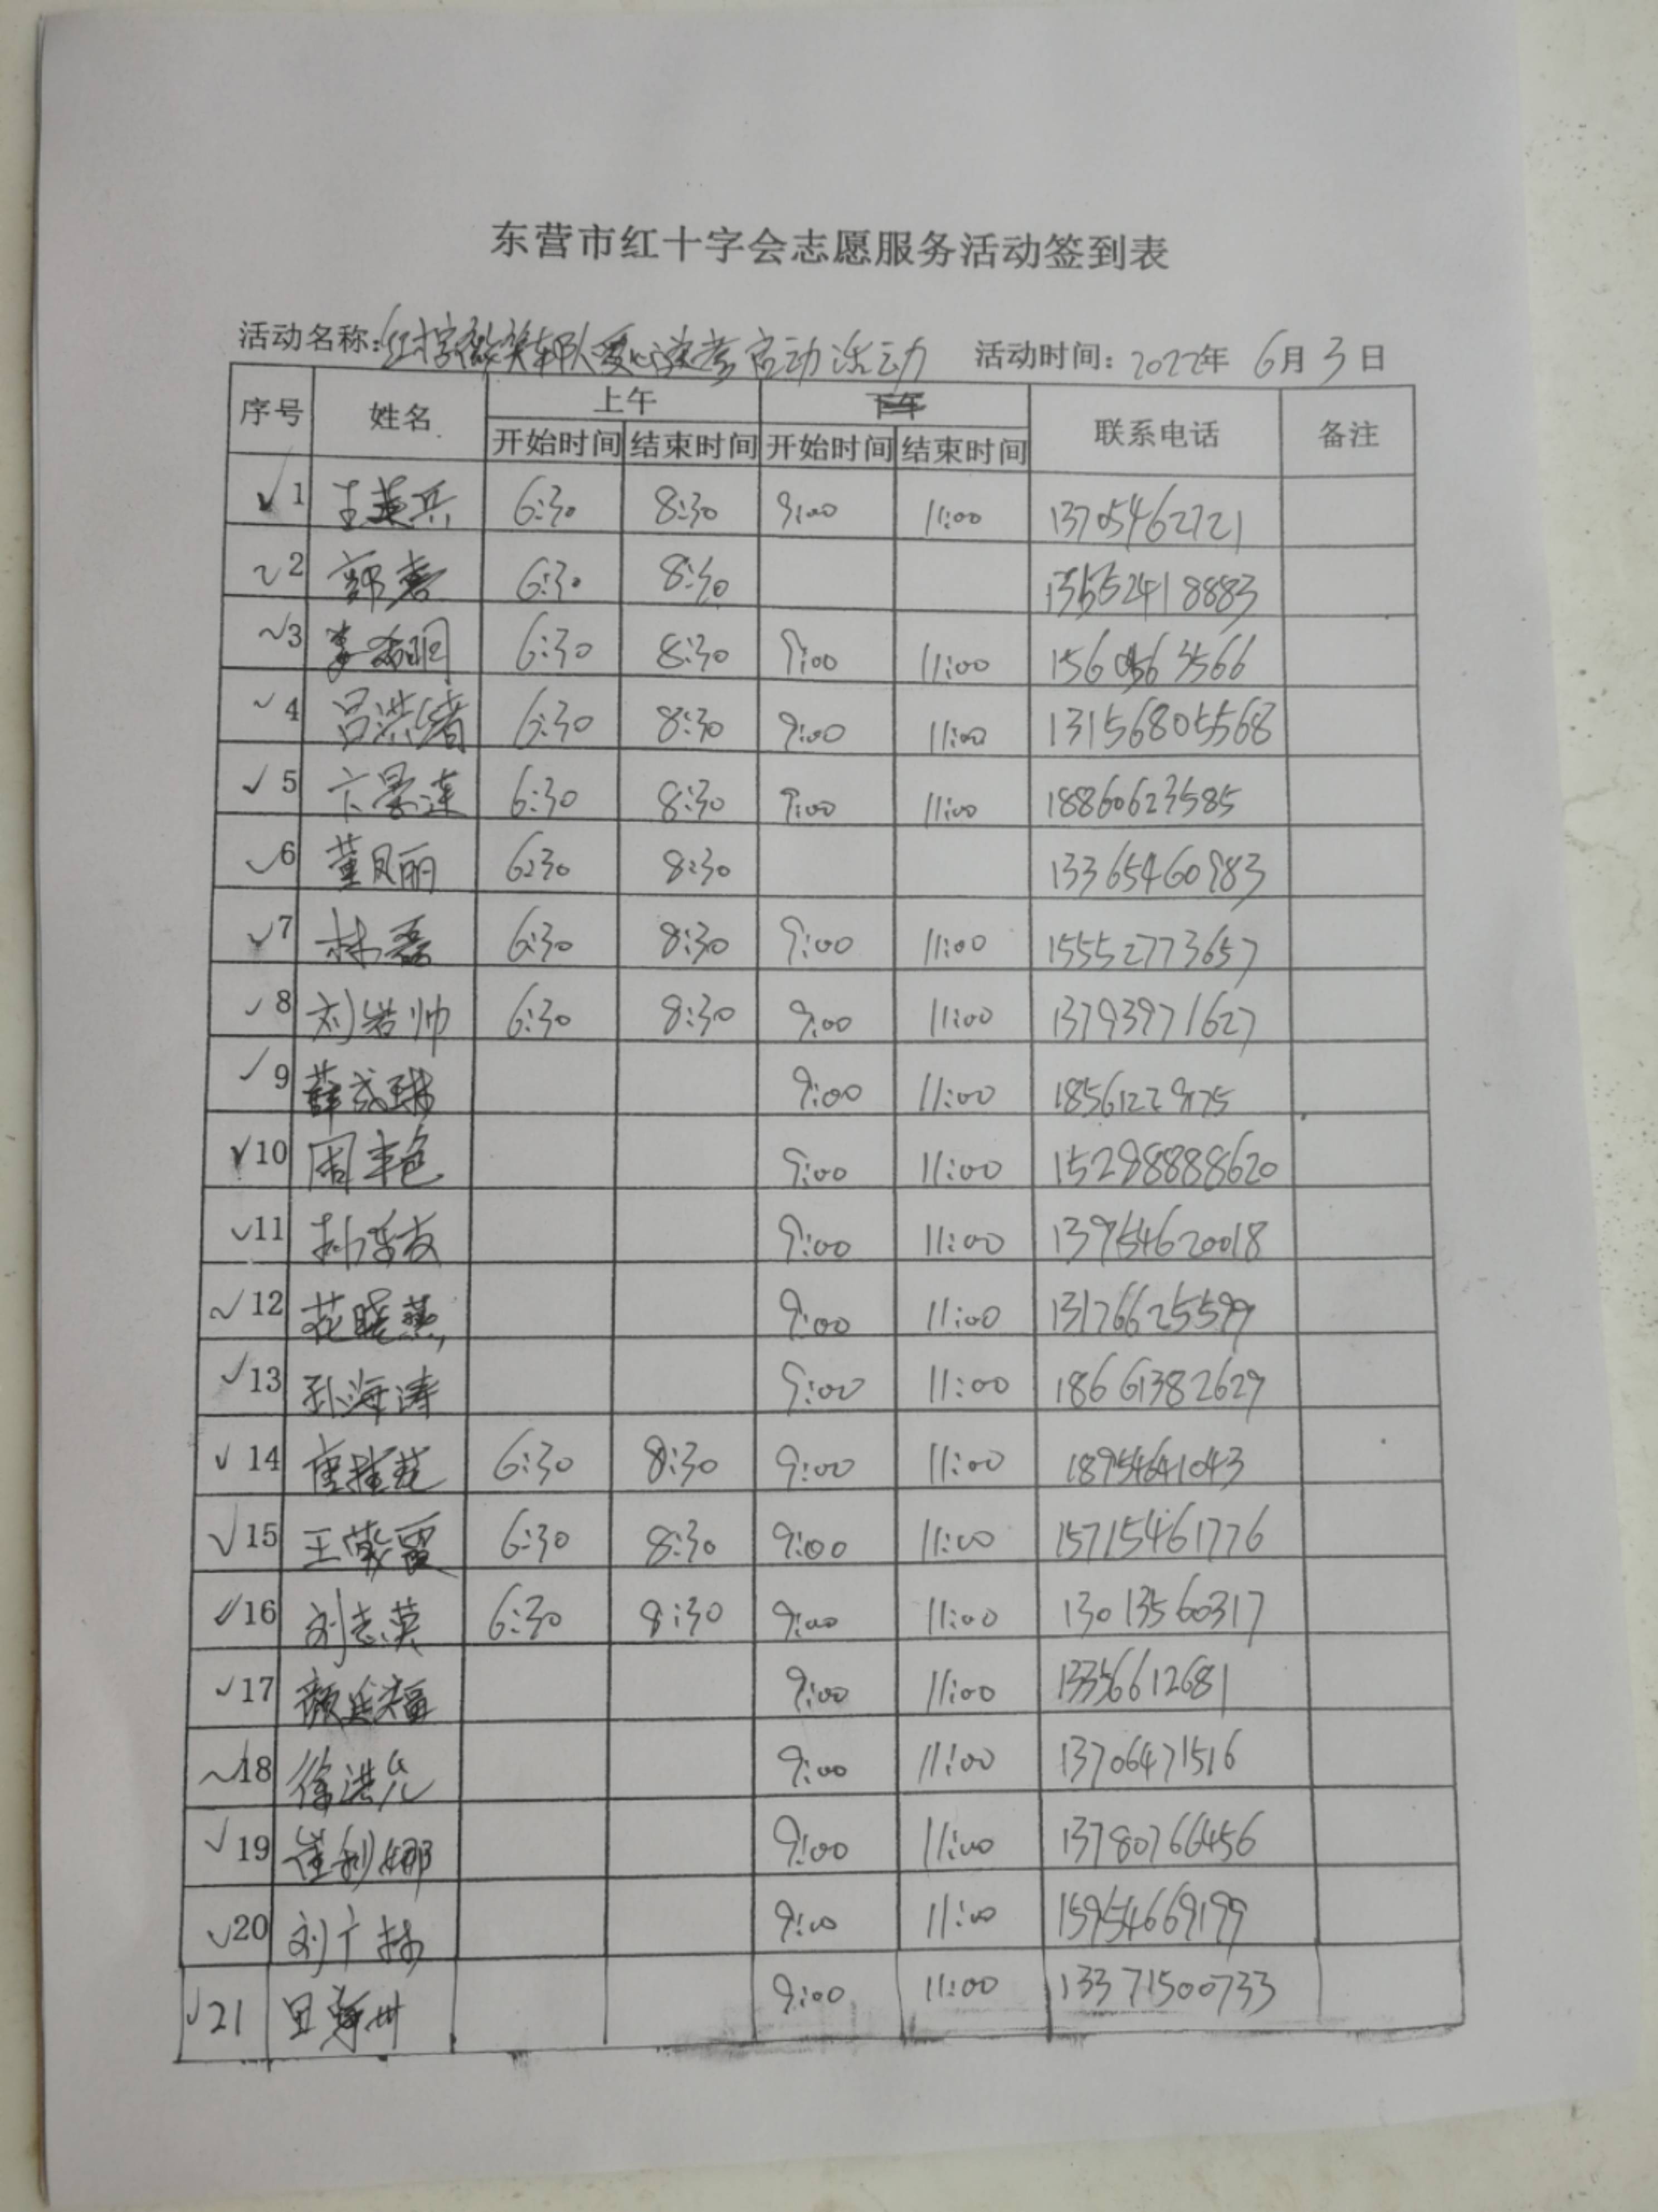 东营市红十字会志愿服务活动签到表
活动名称:红十字微笑车队爱心送考启动活动 活动时间: 2022年 6月 3日
序号 姓名 上午 下午 联系电话 备注
开始时间 结束时间 开始时间 结束时间
✓1 王英兵 6:30 8:30 9:00 11:00 13705462721
✓2 6:30 8:30
✓3 6:30 8:30 9:00 11:00
✓4 吕洪绪 6:30 8:30 9:00 11:00 13156805568
✓5 卞景莲 6:30 8:30 9:00 11:00 18860623585
✓6 董凤丽 6:30 8:30 13365460983
✓7 林磊 6:30 8:30 9:00 11:00 15552773657
✓8 刘岩帅 6:30 8:30 9:00 11:00 13793971627
✓9 9:00 11:00
✓10 周丰色 9:00 11:00 15298888620
✓11 9:00 11:00 13954620018
✓12 范晓燕 9:00 11:00 13176625599
✓13 孙海涛 9:00 11:00 18661382629
✓14 6:30 8:30 9:00 11:00 18954641043
✓15 6:30 8:30 9:00 11:00 15715461776
✓16 刘志英 6:30 8:30 9:00 11:00 13013560317
✓17 颜廷福 9:00 11:00 13356612681
✓18 9:00 11:00 13706471516
✓19 崔利娜 9:00 11:00 13780766456
✓20 刘广林 9:00 11:00 15954669199
✓21 9:00 11:00 13371500733